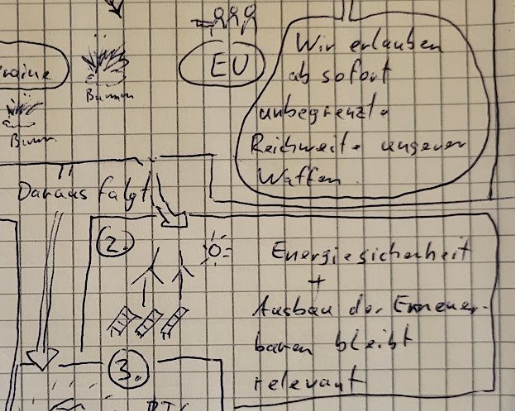 EU
Wir erlauben
ab sofort
unbegrenzte
Reichweite unserer
Waffen.
Bumm
Bumm
Daraus folgt
2.
Energiesicherheit
+
Ausbau der Erneuer-
baren bleibt
relevant
3.